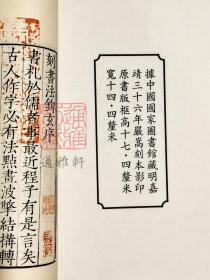 據中國國家圖書館藏明嘉
靖三十六年嚴嵩刻本影印
原書版框高十七·四釐米
寬十四·四釐米
刻書法鉤玄序
書札於儒者事最近程子有是言矣
古人作字必有法點畫波撆結搆轉